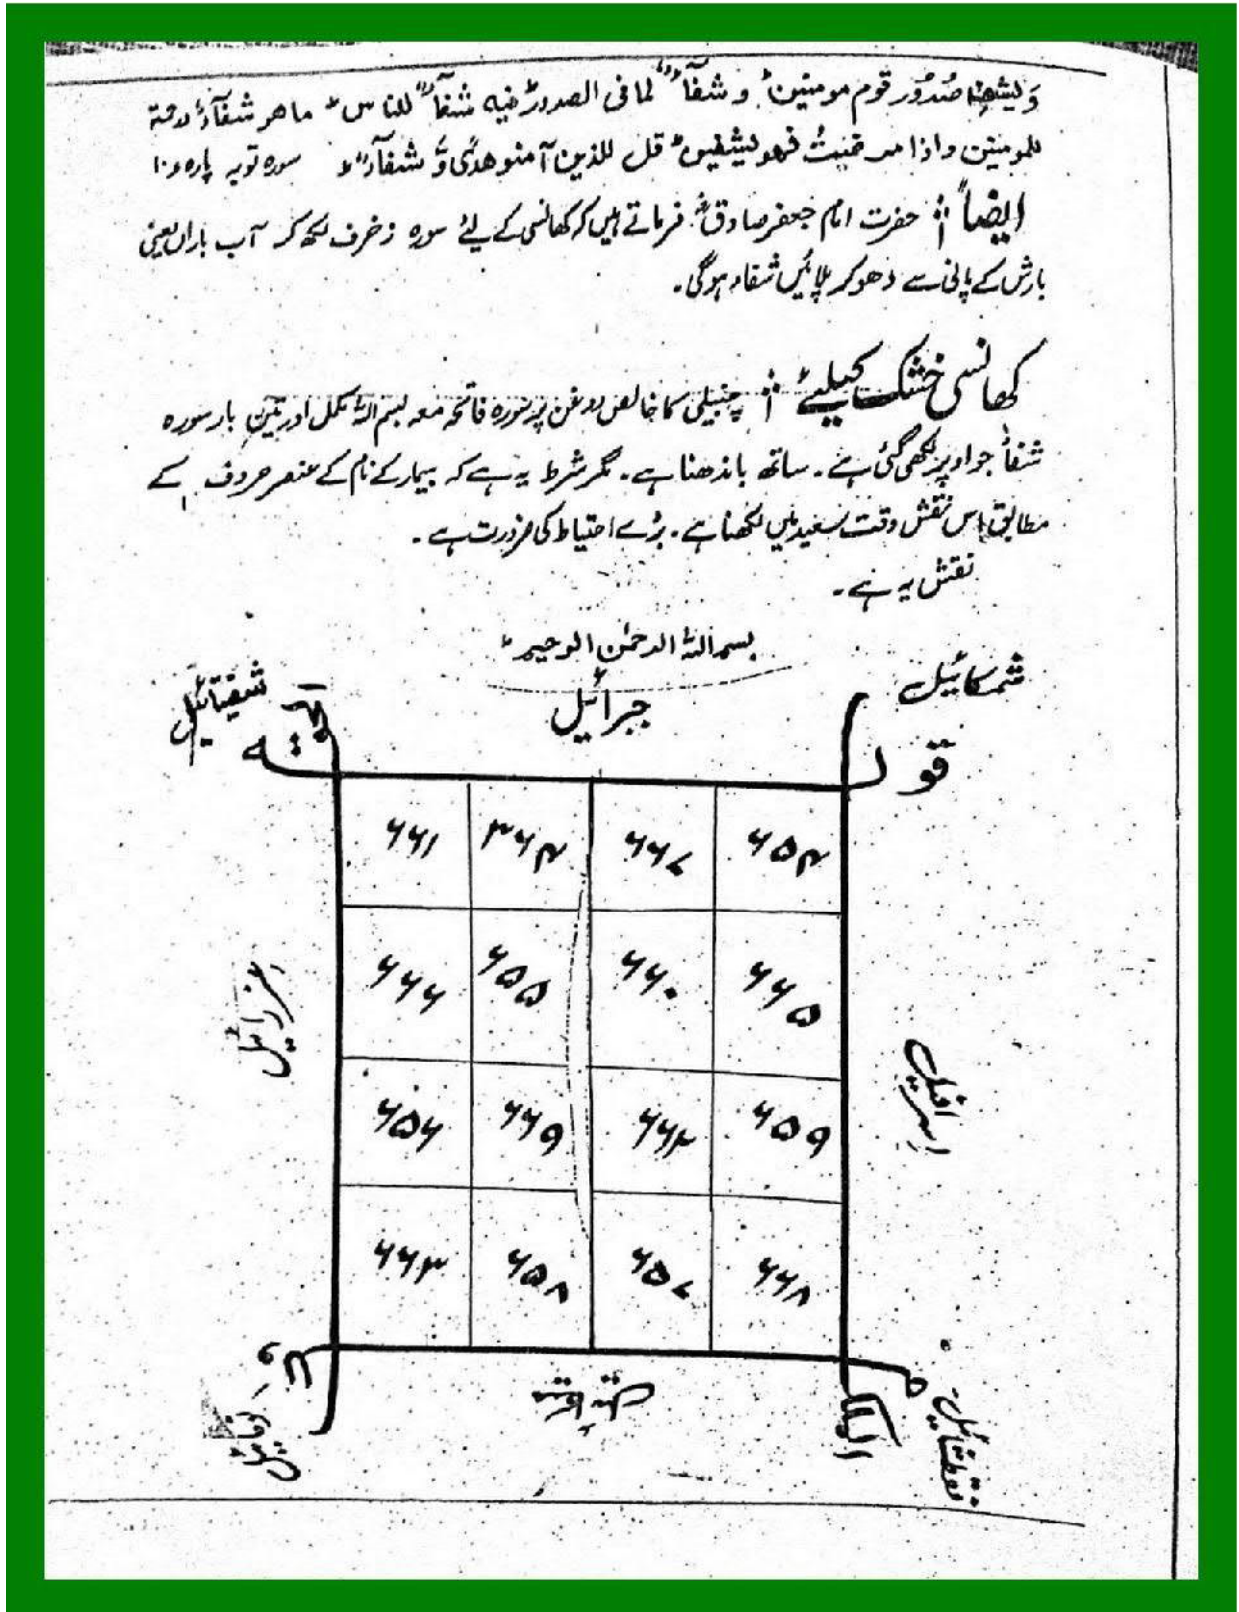 وَلیشف صُدُور قوم مومنین و شفآء لما فی الصدور فیه شفآء للناس ما هو شفآء
للمومنین واذا مرضت فهو یشفین قل للذین آمنو هدًی وَّ شفآء سوره توبہ پارہ ۱۰
ایضاً حضرت امام جعفر صادقؑ فرماتے ہیں کہ کھانسی کے لئے سورہ زخرف لکھ کر آب باراں یعنی
بارش کے پانی سے دھو کر پلائیں شفاء ہوگی۔
کھانسی خشک کیلئے چنبیلی کا خالص روغن پر سورہ فاتحہ معہ بسم اللہ مکمل اور تین بار سورہ
شفأ جو اوپر لکھی گئی ہے۔ ساتھ باندھنا ہے۔ مگر شرط یہ ہے کہ بیمار کے نام کے عنصر حروف کے
مطابق اس نقش وقت سعید میں لکھنا ہے۔ بڑے احتیاط کی ضرورت ہے۔
نقش یہ ہے۔
بسم اللہ الرحمٰن الرحیم
شمکائیل جبرائیل
قو لہ
۶۵۴ ۶۶۷ ۳۶۴ ۶۶۱
۶۶۵ ۶۶۰ ۶۵۵ ۶۶۶
عزرائیل
اسرافیل
۶۵۹ ۶۶۲ ۶۶۹ ۶۵۶
۶۶۸ ۶۵۷ ۶۵۸ ۶۶۳
الملک